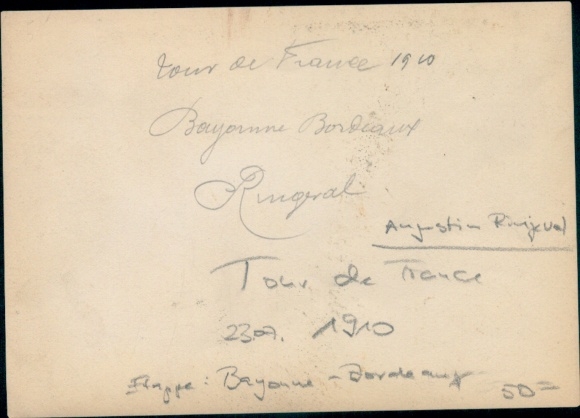 Tour de France 1910
Bayonne Bordeaux
Ringeval
Augustin Ringeval
Tour de France
23.07. 1910
Etappe: Bayonne - Bordeaux
50=